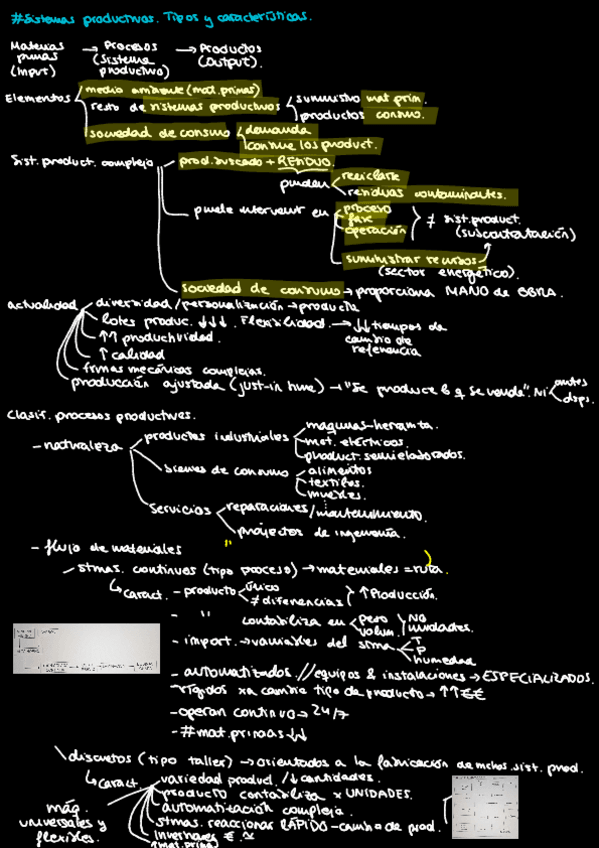 #Sistemas productivos. Tipos y características.
Materias primas (input) → Procesos (sistema productivo) → Productos (output).
Elementos
medio ambiente (mat. primas)
resto de sistemas productivos
suministro mat prim.
productos consumo.
sociedad de consumo
demanda
consume los product.
Sist. product. complejo
prod. buscado + RESIDUO.
pueden
reciclarse
residuos contaminantes.
puede intervenir en
proceso
fase
operación
≠ sist. product.
(subcontratación)
suministrar recursos
(sector energético).
sociedad de consumo → proporciona MANO de OBRA.
actualidad
diversidad/personalización → producto
lotes produc. ↓↓↓. Flexibilidad → ↓↓ tiempos de cambio de referencia
↑↑ productividad.
↑ calidad
formas mecánicas complejas.
producción ajustada (just-in time) → "Se produce lo q se vende". Ni
antes
desp.
Clasif. procesos productivos.
- naturaleza
productos industriales
máquinas-herramta.
mot. eléctricos.
product. semielaborados.
bienes de consumo
alimentos
textiles.
muebles.
Servicios
reparaciones/mantenimiento.
proyectos de ingeniería.
- flujo de materiales
stmas. continuos (tipo proceso) → materiales = ruta.
caract.
- producto
único
≠ diferencias
↑ Producción.
- " contabiliza en
peso
volum.
NO unidades.
- import. → variables del stma
T
P
humedad
- automatizados. // equipos & instalaciones → ESPECIALIZADOS.
- rígidos xa cambiar tipo de producto → ↑↑ €€
- operan continuo → 24/7
- #mat. primas ↓↓
discretos (tipo taller) → orientados a la fabricación de mchos. sist. prod.
caract.
variedad product. / ↓ cantidades.
producto contabiliza x UNIDADES.
automatización compleja.
stmas. reaccionar RÁPIDO - cambio de prod.
inversores €. ≃
↑mat. prima
máq. universales y flexibles.